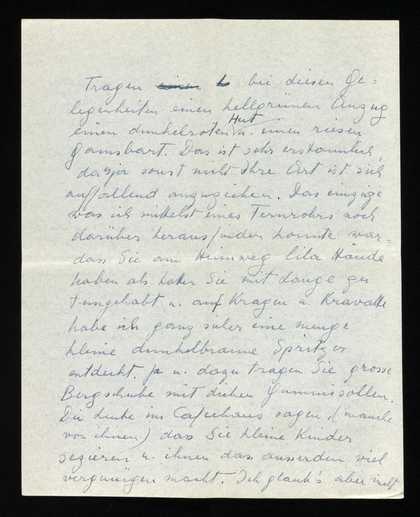 Tragen bei diesen Ge-
legenheiten einen hellgrünen Anzug
einen dunkelroten Hut u. einen riesen
Gamsbart. Das ist sehr erstaunlich,
da ja sonst nicht Ihre Art ist sich
auffallend anzuziehen. Das einzige
was ich mittelst eines Fernrohrs noch
darüber herausfinden konnte war
dass Sie am Heimweg lila Hände
haben als hätten Sie mit Lauge ge
u. auf Kragen u Kravatte
habe ich ganz sicher eine menge
kleine dunkelbraune Spritzer
entdeckt. Ja u. dazu tragen Sie grosse
Bergschuhe mit dicken Gummisollen.
Die Leute im Cafeehaus sagen (manche
von ihnen) das Sie kleine Kinder
sezieren u. ihnen das ausserden viel
vergnüngen macht. Ich glaub's aber nicht